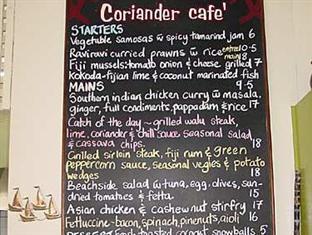 Coriander cafe'
STARTERS
Vegetable samosas w spicy tamarind jam 6
Raviravi curried prawns w rice entree 10.5 main 18
Fiji mussels: tomato onion & cheese grilled 7
Kokoda-fijian lime & coconut marinated fish 9.5
MAINS
Southern indian chicken curry w masala,
ginger, full condiments, pappadam & rice 17
Catch of the day ~ grilled walu steak,
lime, coriander & chilli sauce seasonal salad
& cassava chips. 18
Grilled sirloin steak, fiji rum & green
peppercorn sauce, seasonal vegies & potato
wedges 18
Beachside salad w tuna, egg, olives, sun-
dried tomatoes & fetta. 15
Asian chicken & cashew nut stirfry 17
Fettuccine-bacon, spinach, pinenuts, aioli 16
toasted coconut snowballs